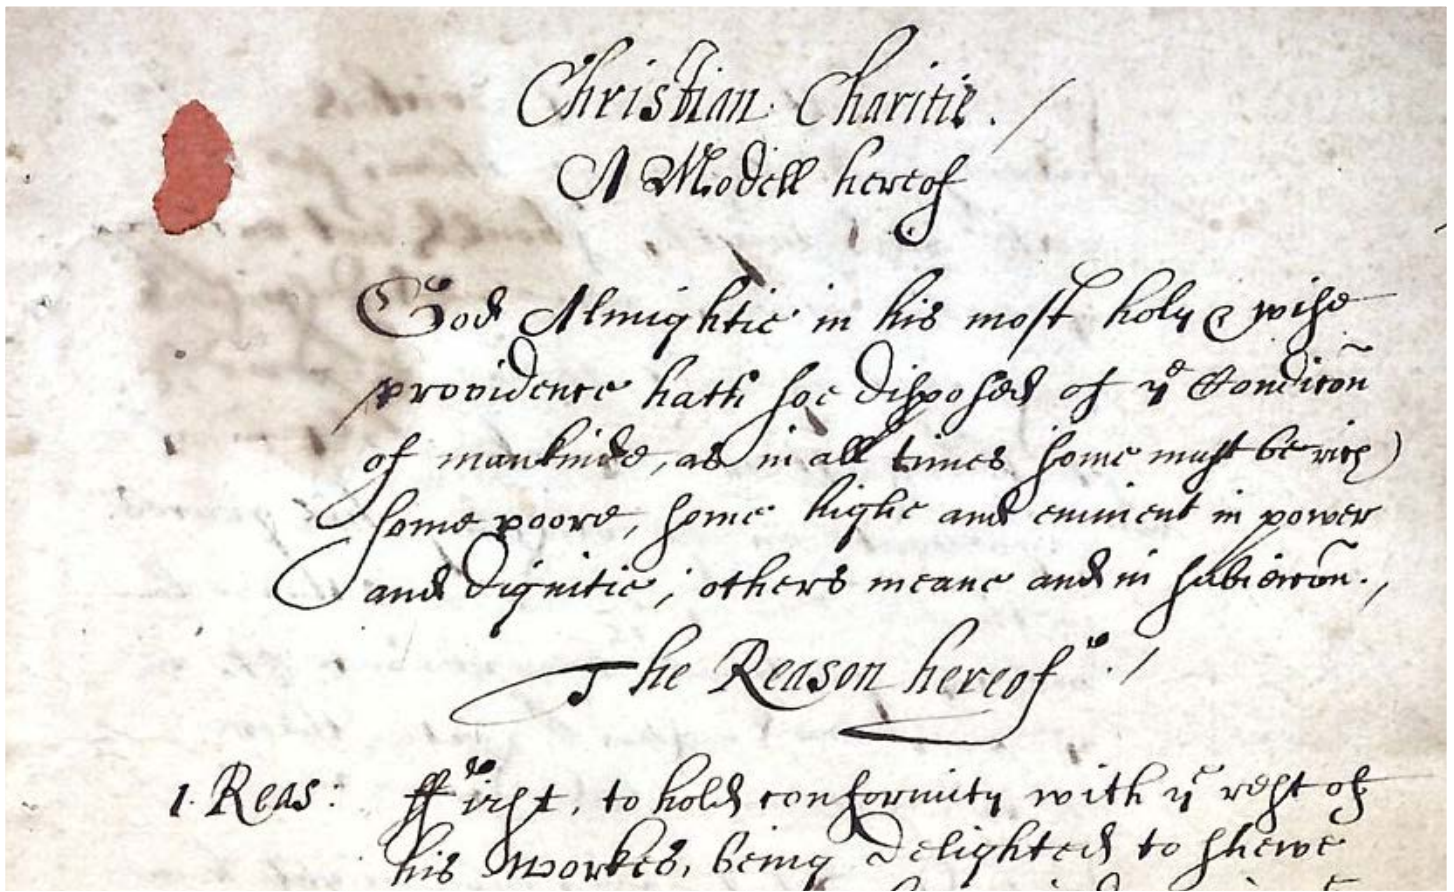 Christian Charitie.
A Modell hereof
God Almightie in his most holy & wise
providence hath soe disposed of yᵉ Condicōn
of mankinde, as in all times some must be rich
some poore, some highe and eminent in power
and dignitie; others meane and in subieccōn.
The Reason hereof.
1. Reas: ffirst, to hold conformity with yᵉ rest of
his workes, being delighted to shewe